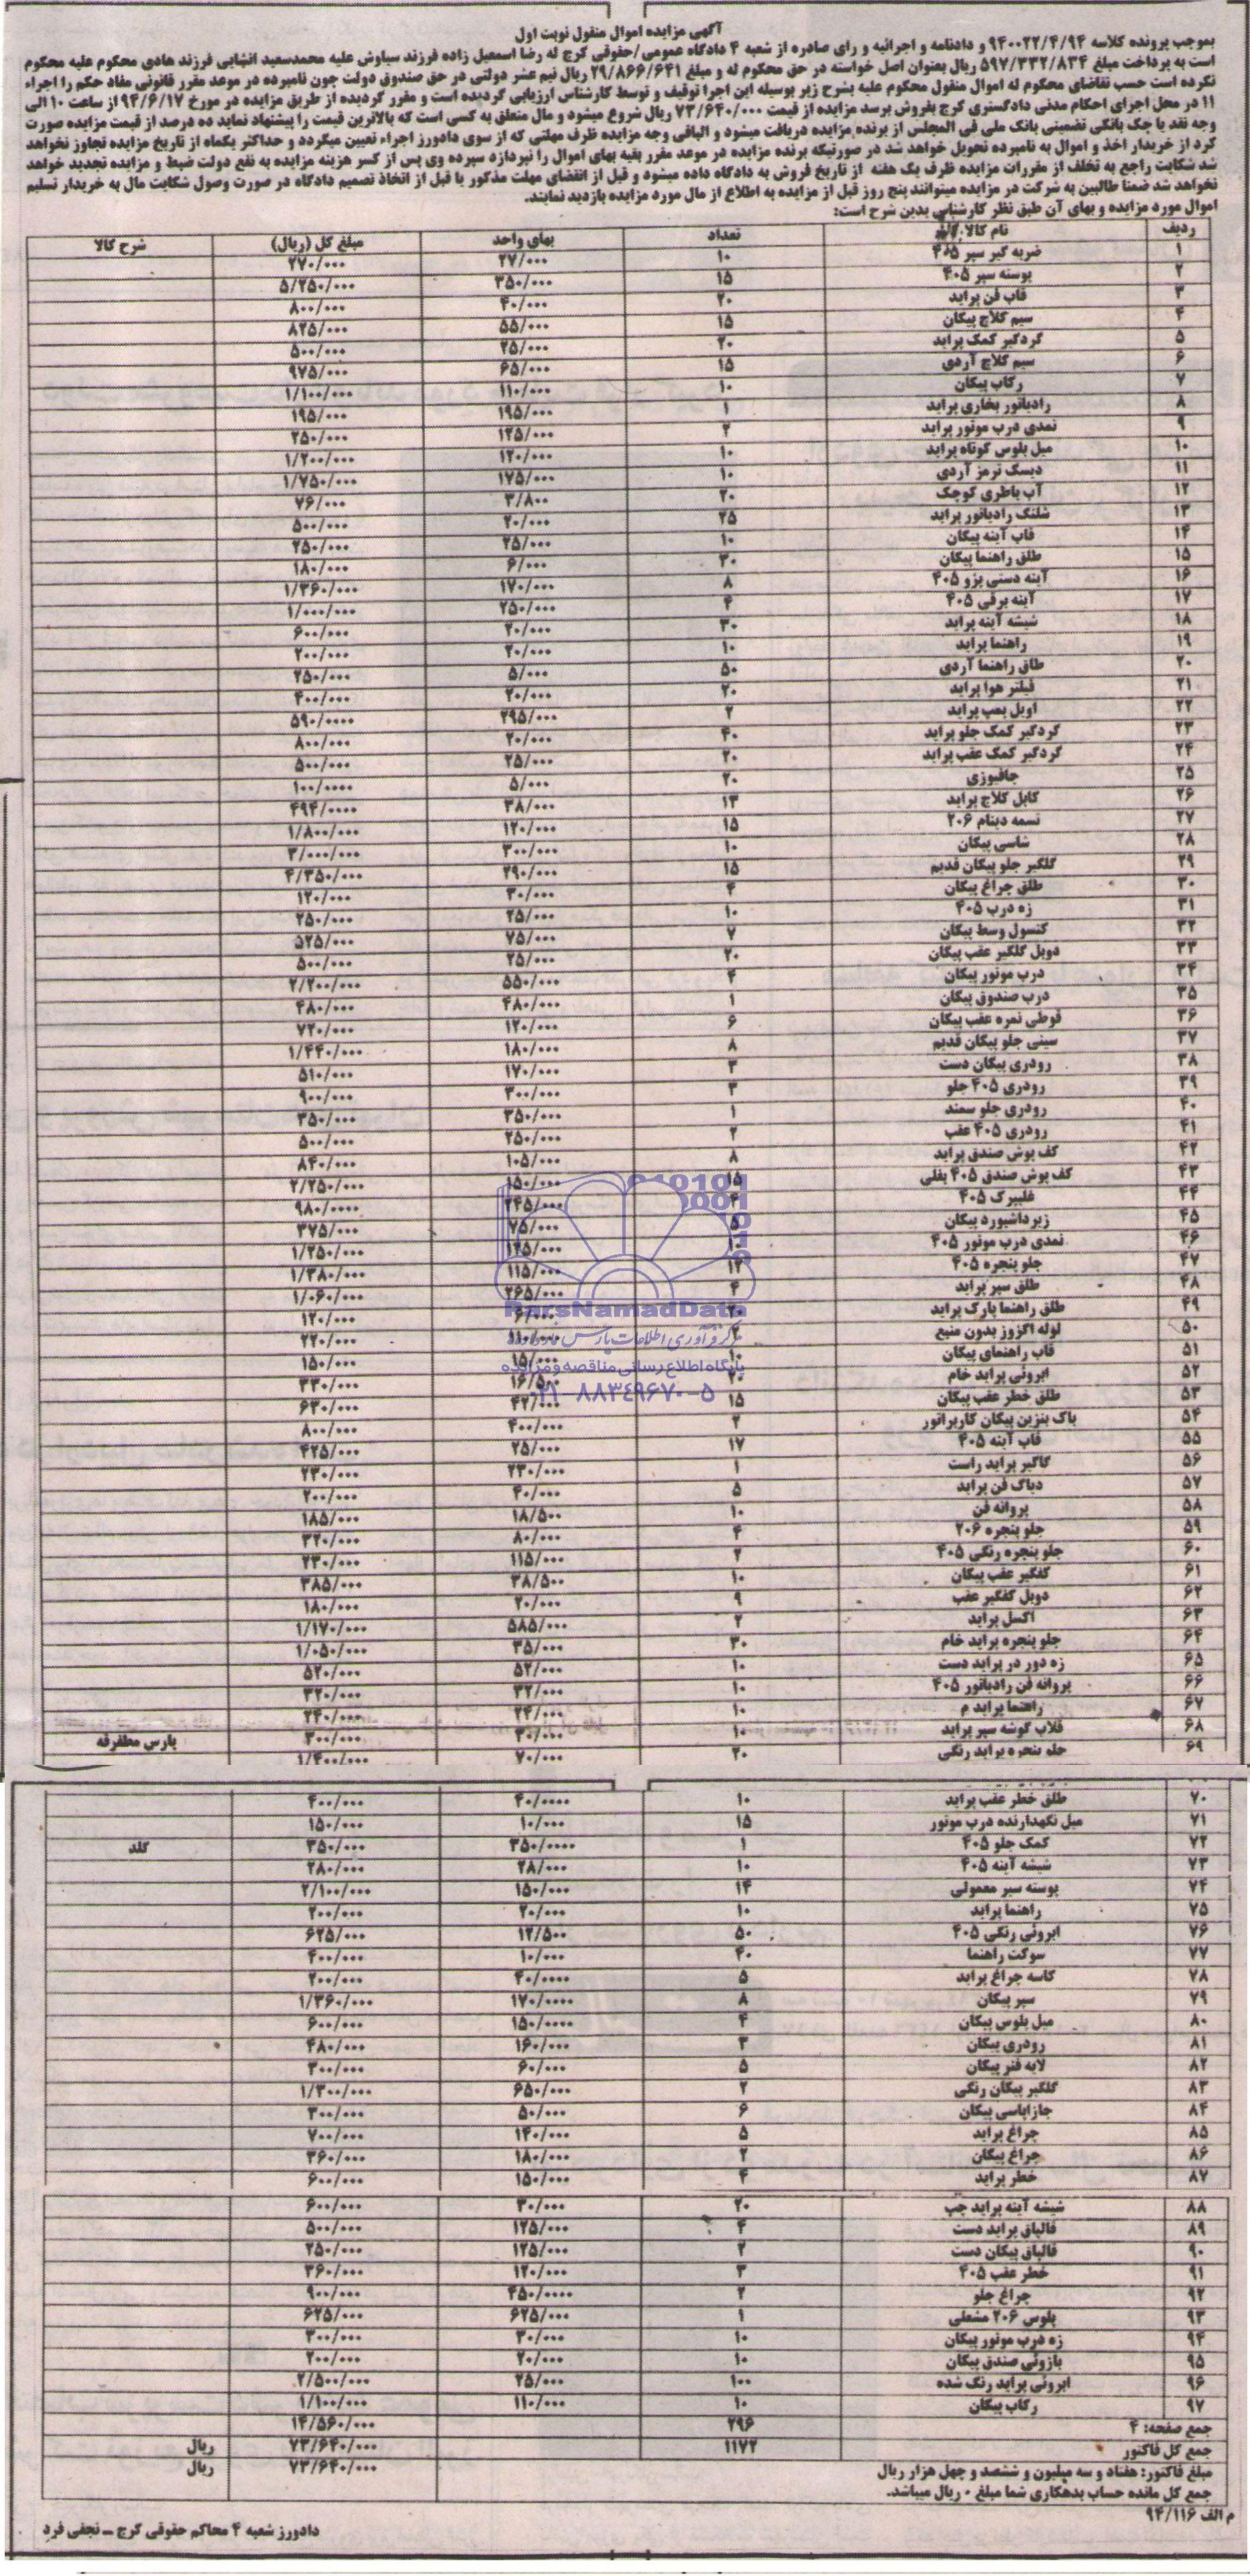 آگهی مزایده اموال منقول نوبت اول
بموجب پرونده کلاسه ۹۴۰۰۲۲/۴/۹۴ و دادنامه و اجرائیه و رای صادره از شعبه ۴ دادگاه عمومی/حقوقی کرج له رضا اسمعیل زاده فرزند سیاوش علیه محمدسعید انشایی فرزند هادی محکوم علیه محکوم
است به پرداخت مبلغ ۵۹۷/۳۳۲/۸۳۴ ریال بعنوان اصل خواسته در حق محکوم له و مبلغ ۲۹/۸۶۶/۶۴۱ ریال نیم عشر دولتی در حق صندوق دولت چون نامبرده در موعد مقرر قانونی مفاد حکم را اجراء
نکرده است حسب تقاضای محکوم له اموال منقول محکوم علیه بشرح زیر بوسیله این اجرا توقیف و توسط کارشناس ارزیابی گردیده است و مقرر گردیده از طریق مزایده در مورخ ۹۴/۶/۱۷ از ساعت ۱۰ الی
۱۱ در محل اجرای احکام مدنی دادگستری کرج بفروش برسد مزایده از قیمت ۷۳/۶۴۰/۰۰۰ ریال شروع میشود و مال متعلق به کسی است که بالاترین قیمت را پیشنهاد نماید ده درصد از قیمت مزایده صورت
وجه نقد یا چک بانکی تضمینی بانک ملی فی المجلس از برنده مزایده دریافت میشود و الباقی وجه مزایده ظرف مهلتی که از سوی دادورز اجراء تعیین میگردد و حداکثر یکماه از تاریخ مزایده تجاوز نخواهد
کرد از خریدار اخذ و اموال به نامبرده تحویل خواهد شد در صورتیکه برنده مزایده در موعد مقرر بقیه بهای اموال را نپردازد سپرده وی پس از کسر هزینه مزایده به نفع دولت ضبط و مزایده تجدید خواهد
شد شکایت راجع به تخلف از مقررات مزایده ظرف یک هفته از تاریخ فروش به دادگاه داده میشود و قبل از انقضای مهلت مذکور یا قبل از اتخاذ تصمیم دادگاه در صورت وصول شکایت مال به خریدار تسلیم
نخواهد شد ضمنا طالبین به شرکت در مزایده میتوانند پنج روز قبل از مزایده به اطلاع از مال مورد مزایده بازدید نمایند.
اموال مورد مزایده و بهای آن طبق نظر کارشناس بدین شرح است:
ردیف نام کالا تعداد بهای واحد مبلغ کل (ریال) شرح کالا
۱ ضربه گیر سپر ۴۰۵ ۱۰ ۲۷/۰۰۰ ۲۷۰/۰۰۰
۲ پوسته سپر ۴۰۵ ۱۵ ۳۵۰/۰۰۰ ۵/۲۵۰/۰۰۰
۳ قاب فن پراید ۲۰ ۴۰/۰۰۰ ۸۰۰/۰۰۰
۴ سیم کلاج پیکان ۱۵ ۵۵/۰۰۰ ۸۲۵/۰۰۰
۵ گردگیر کمک پراید ۲۰ ۲۵/۰۰۰ ۵۰۰/۰۰۰
۶ سیم کلاج آردی ۱۵ ۶۵/۰۰۰ ۹۷۵/۰۰۰
۷ رکاب پیکان ۱۰ ۱۱۰/۰۰۰ ۱/۱۰۰/۰۰۰
۸ رادیاتور بخاری پراید ۱ ۱۹۵/۰۰۰ ۱۹۵/۰۰۰
۹ نمدی درب موتور پراید ۲ ۱۲۵/۰۰۰ ۲۵۰/۰۰۰
۱۰ میل پلوس کوتاه پراید ۱۰ ۱۲۰/۰۰۰ ۱/۲۰۰/۰۰۰
۱۱ دیسک ترمز آردی ۱۰ ۱۷۵/۰۰۰ ۱/۷۵۰/۰۰۰
۱۲ آب باطری کوچک ۲۰ ۳/۸۰۰ ۷۶/۰۰۰
۱۳ شلنگ رادیاتور پراید ۲۵ ۲۰/۰۰۰ ۵۰۰/۰۰۰
۱۴ قاب آینه پیکان ۱۰ ۲۵/۰۰۰ ۲۵۰/۰۰۰
۱۵ طلق راهنما پیکان ۳۰ ۶/۰۰۰ ۱۸۰/۰۰۰
۱۶ آینه دستی پژو ۴۰۵ ۸ ۱۷۰/۰۰۰ ۱/۳۶۰/۰۰۰
۱۷ آینه برقی ۴۰۵ ۴ ۲۵۰/۰۰۰ ۱/۰۰۰/۰۰۰
۱۸ شیشه آینه پراید ۳۰ ۲۰/۰۰۰ ۶۰۰/۰۰۰
۱۹ راهنما پراید ۱۰ ۲۰/۰۰۰ ۲۰۰/۰۰۰
۲۰ طاق راهنما آردی ۵۰ ۵/۰۰۰ ۲۵۰/۰۰۰
۲۱ فیلتر هوا پراید ۲۰ ۲۰/۰۰۰ ۴۰۰/۰۰۰
۲۲ اویل پمپ پراید ۲ ۲۹۵/۰۰۰ ۵۹۰/۰۰۰۰
۲۳ گردگیر کمک جلو پراید ۴۰ ۲۰/۰۰۰ ۸۰۰/۰۰۰
۲۴ گردگیر کمک عقب پراید ۲۰ ۲۵/۰۰۰ ۵۰۰/۰۰۰
۲۵ جافیوزی ۲۰ ۵/۰۰۰ ۱۰۰/۰۰۰۰
۲۶ کابل کلاج پراید ۱۳ ۳۸/۰۰۰ ۴۹۴/۰۰۰۰
۲۷ تسمه دینام ۲۰۶ ۱۵ ۱۲۰/۰۰۰ ۱/۸۰۰/۰۰۰
۲۸ شاسی پیکان ۱۰ ۳۰۰/۰۰۰ ۳/۰۰۰/۰۰۰
۲۹ گلگیر جلو پیکان قدیم ۱۵ ۲۹۰/۰۰۰ ۴/۳۵۰/۰۰۰
۳۰ طلق چراغ پیکان ۴ ۳۰/۰۰۰ ۱۲۰/۰۰۰
۳۱ زه درب ۴۰۵ ۱۰ ۲۵/۰۰۰ ۲۵۰/۰۰۰
۳۲ کنسول وسط پیکان ۷ ۷۵/۰۰۰ ۵۲۵/۰۰۰
۳۳ دوبل گلگیر عقب پیکان ۲۰ ۲۵/۰۰۰ ۵۰۰/۰۰۰
۳۴ درب موتور پیکان ۴ ۵۵۰/۰۰۰ ۲/۲۰۰/۰۰۰
۳۵ درب صندوق پیکان ۱ ۴۸۰/۰۰۰ ۴۸۰/۰۰۰
۳۶ قوطی نمره عقب پیکان ۶ ۱۲۰/۰۰۰ ۷۲۰/۰۰۰
۳۷ سینی جلو پیکان قدیم ۸ ۱۸۰/۰۰۰ ۱/۴۴۰/۰۰۰
۳۸ رودری پیکان دست ۳ ۱۷۰/۰۰۰ ۵۱۰/۰۰۰
۳۹ رودری ۴۰۵ جلو ۳ ۳۰۰/۰۰۰ ۹۰۰/۰۰۰
۴۰ رودری جلو سمند ۱ ۳۵۰/۰۰۰ ۳۵۰/۰۰۰
۴۱ رودری ۴۰۵ عقب ۲ ۲۵۰/۰۰۰ ۵۰۰/۰۰۰
۴۲ کف پوش صندق پراید ۸ ۱۰۵/۰۰۰ ۸۴۰/۰۰۰
۴۳ کف پوش صندق ۴۰۵ پفلی ۱۵ ۱۵۰/۰۰۰ ۲/۲۵۰/۰۰۰
۴۴ فلیبرک ۴۰۵ ۴ ۲۴۵/۰۰۰ ۹۸۰/۰۰۰۰
۴۵ زیرداشبورد پیکان ۵ ۷۵/۰۰۰ ۳۷۵/۰۰۰
۴۶ نمدی درب موتور ۴۰۵ ۱۰ ۱۲۵/۰۰۰ ۱/۲۵۰/۰۰۰
۴۷ جلو پنجره ۴۰۵ ۱۲ ۱۱۵/۰۰۰ ۱/۳۸۰/۰۰۰
۴۸ طلق سپر پراید ۴ ۲۶۵/۰۰۰ ۱/۰۶۰/۰۰۰
۴۹ طلق راهنما پارک پراید ۲۰ ۶/۰۰۰ ۱۲۰/۰۰۰
۵۰ لوله اگزوز بدون منبع ۲ ۱۱۰/۰۰۰ ۲۲۰/۰۰۰
۵۱ قاب راهنمای پیکان ۱۰ ۱۵/۰۰۰ ۱۵۰/۰۰۰
۵۲ ابروئی پراید خام ۲۰ ۱۶/۵۰۰ ۳۳۰/۰۰۰
۵۳ طلق خطر عقب پیکان ۱۵ ۴۲/۰۰۰ ۶۳۰/۰۰۰
۵۴ باک بنزین پیکان کاربراتور ۲ ۴۰۰/۰۰۰ ۸۰۰/۰۰۰
۵۵ قاب آینه ۴۰۵ ۱۷ ۲۵/۰۰۰ ۴۲۵/۰۰۰
۵۶ گلگیر پراید راست ۱ ۲۳۰/۰۰۰ ۲۳۰/۰۰۰
۵۷ دیاگ فن پراید ۵ ۴۰/۰۰۰ ۲۰۰/۰۰۰
۵۸ پروانه فن ۱۰ ۱۸/۵۰۰ ۱۸۵/۰۰۰
۵۹ جلو پنجره ۲۰۶ ۴ ۸۰/۰۰۰ ۳۲۰/۰۰۰
۶۰ جلو پنجره رنگی ۴۰۵ ۲ ۱۱۵/۰۰۰ ۲۳۰/۰۰۰
۶۱ کفگیر عقب پیکان ۱۰ ۳۸/۵۰۰ ۳۸۵/۰۰۰
۶۲ دوبل کفگیر عقب ۹ ۲۰/۰۰۰ ۱۸۰/۰۰۰
۶۳ اکسل پراید ۲ ۵۸۵/۰۰۰ ۱/۱۷۰/۰۰۰
۶۴ جلو پنجره پراید خام ۳۰ ۳۵/۰۰۰ ۱/۰۵۰/۰۰۰
۶۵ زه دور در پراید دست ۱۰ ۵۲/۰۰۰ ۵۲۰/۰۰۰
۶۶ پروانه فن رادیاتور ۴۰۵ ۱۰ ۳۲/۰۰۰ ۳۲۰/۰۰۰
۶۷ راهنما پراید م ۱۰ ۲۴/۰۰۰ ۲۴۰/۰۰۰
۶۸ قلاب گوشه سپر پراید ۱۰ ۳۰/۰۰۰ ۳۰۰/۰۰۰ پارس مظفرقه
۶۹ جلو پنجره پراید رنگی ۲۰ ۷۰/۰۰۰ ۱/۴۰۰/۰۰۰
۷۰ طلق خطر عقب پراید ۱۰ ۴۰/۰۰۰۰ ۴۰۰/۰۰۰
۷۱ میل نگهدارنده درب موتور ۱۵ ۱۰/۰۰۰ ۱۵۰/۰۰۰
۷۲ کمک جلو ۴۰۵ ۱ ۳۵۰/۰۰۰۰ ۳۵۰/۰۰۰ کلد
۷۳ شیشه آینه ۴۰۵ ۱۰ ۲۸/۰۰۰ ۲۸۰/۰۰۰
۷۴ پوسته سپر معمولی ۱۴ ۱۵۰/۰۰۰ ۲/۱۰۰/۰۰۰
۷۵ راهنما پراید ۱۰ ۲۰/۰۰۰ ۲۰۰/۰۰۰
۷۶ ابروئی رنگی ۴۰۵ ۵۰ ۱۲/۵۰۰ ۶۲۵/۰۰۰
۷۷ سوکت راهنما ۴۰ ۱۰/۰۰۰ ۴۰۰/۰۰۰
۷۸ کاسه چراغ پراید ۵ ۴۰/۰۰۰۰ ۲۰۰/۰۰۰
۷۹ سپر پیکان ۸ ۱۷۰/۰۰۰۰ ۱/۳۶۰/۰۰۰
۸۰ میل پلوس پیکان ۴ ۱۵۰/۰۰۰۰ ۶۰۰/۰۰۰
۸۱ رودری پیکان ۳ ۱۶۰/۰۰۰ ۴۸۰/۰۰۰
۸۲ لایه فنر پیکان ۵ ۶۰/۰۰۰ ۳۰۰/۰۰۰
۸۳ گلگیر پیکان رنگی ۲ ۶۵۰/۰۰۰ ۱/۳۰۰/۰۰۰
۸۴ جازاپاسی پیکان ۶ ۵۰/۰۰۰ ۳۰۰/۰۰۰
۸۵ چراغ پراید ۵ ۱۴۰/۰۰۰ ۷۰۰/۰۰۰
۸۶ چراغ پیکان ۲ ۱۸۰/۰۰۰ ۳۶۰/۰۰۰
۸۷ خطر پراید ۴ ۱۵۰/۰۰۰ ۶۰۰/۰۰۰
۸۸ شیشه آینه پراید چپ ۲۰ ۳۰/۰۰۰ ۶۰۰/۰۰۰
۸۹ قالپاق پراید دست ۴ ۱۲۵/۰۰۰ ۵۰۰/۰۰۰
۹۰ قالپاق پیکان دست ۲ ۱۲۵/۰۰۰ ۲۵۰/۰۰۰
۹۱ خطر عقب ۴۰۵ ۳ ۱۲۰/۰۰۰ ۳۶۰/۰۰۰
۹۲ چراغ جلو ۲ ۴۵۰/۰۰۰۰ ۹۰۰/۰۰۰
۹۳ پلوس ۲۰۶ مشعلی ۱ ۶۲۵/۰۰۰ ۶۲۵/۰۰۰
۹۴ زه درب موتور پیکان ۱۰ ۳۰/۰۰۰ ۳۰۰/۰۰۰
۹۵ بازوئی صندق پیکان ۱۰ ۲۰/۰۰۰ ۲۰۰/۰۰۰
۹۶ ابروئی پراید رنگ شده ۱۰۰ ۲۵/۰۰۰ ۲/۵۰۰/۰۰۰
۹۷ رکاب پیکان ۱۰ ۱۱۰/۰۰۰ ۱/۱۰۰/۰۰۰
جمع صفحه: ۴ ۲۹۶ ۱۴/۵۶۰/۰۰۰
جمع کل فاکتور ۱۱۷۲ ۷۳/۶۴۰/۰۰۰ ریال
۷۳/۶۴۰/۰۰۰ ریال
مبلغ فاکتور: هفتاد و سه میلیون و ششصد و چهل هزار ریال
جمع کل مانده حساب بدهکاری شما مبلغ ۰ ریال میباشد.
م الف ۹۴/۱۱۶
دادورز شعبه ۴ محاکم حقوقی کرج ــ نجفی فرد
ParsNamadData
گردآوری اطلاعات پارس نماد داده
پایگاه اطلاع رسانی مناقصه و مزایده
۰۲۱-۸۸۳۴۹۶۷۰-۵